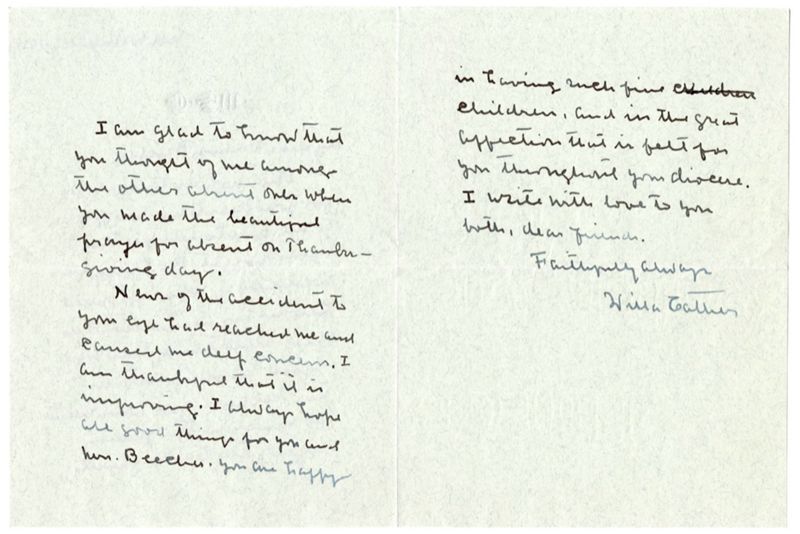 I am glad to know that
you thought of me among
the other absent ones when
you made the beautiful
prayer for absent on Thanks-
giving day.
News of the accident to
your eye had reached me and
caused me deep concern. I
am thankful that it is
improving. I always hope
all good things for you and
Mrs. Beecher. You are happy
in having such fine children
children, and in the great
affection that is felt for
you throughout your diocese.
I write with love to you
both, dear friends.
Faithfully always
Willa Cather